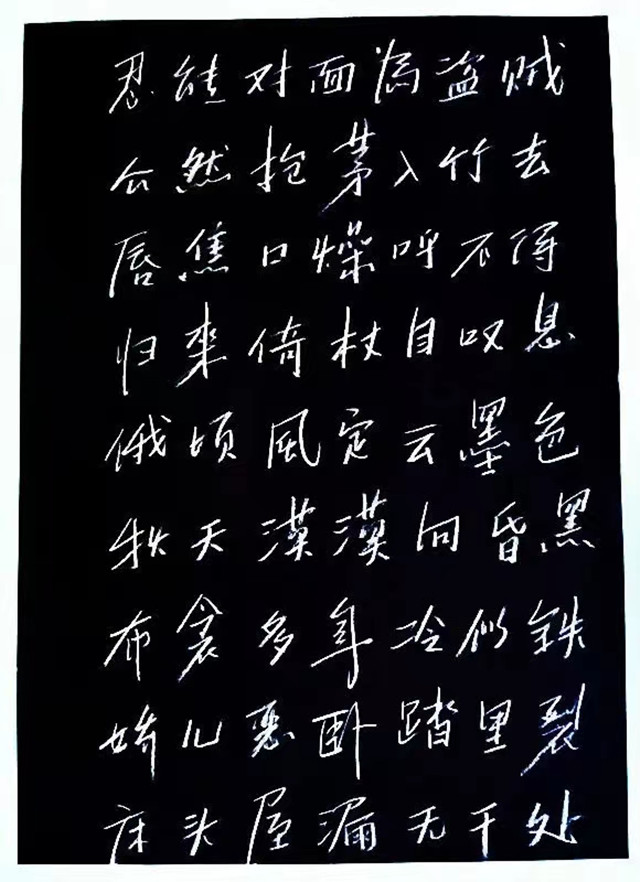 忍能对面為盗贼
公然抢茅入竹去
唇焦口燥呼不得
归来倚杖自叹息
俄顷風定云墨色
秋天漠漠向昏黑
布衾多年冷似铁
娇儿恶卧踏里裂
床头屋漏无干处